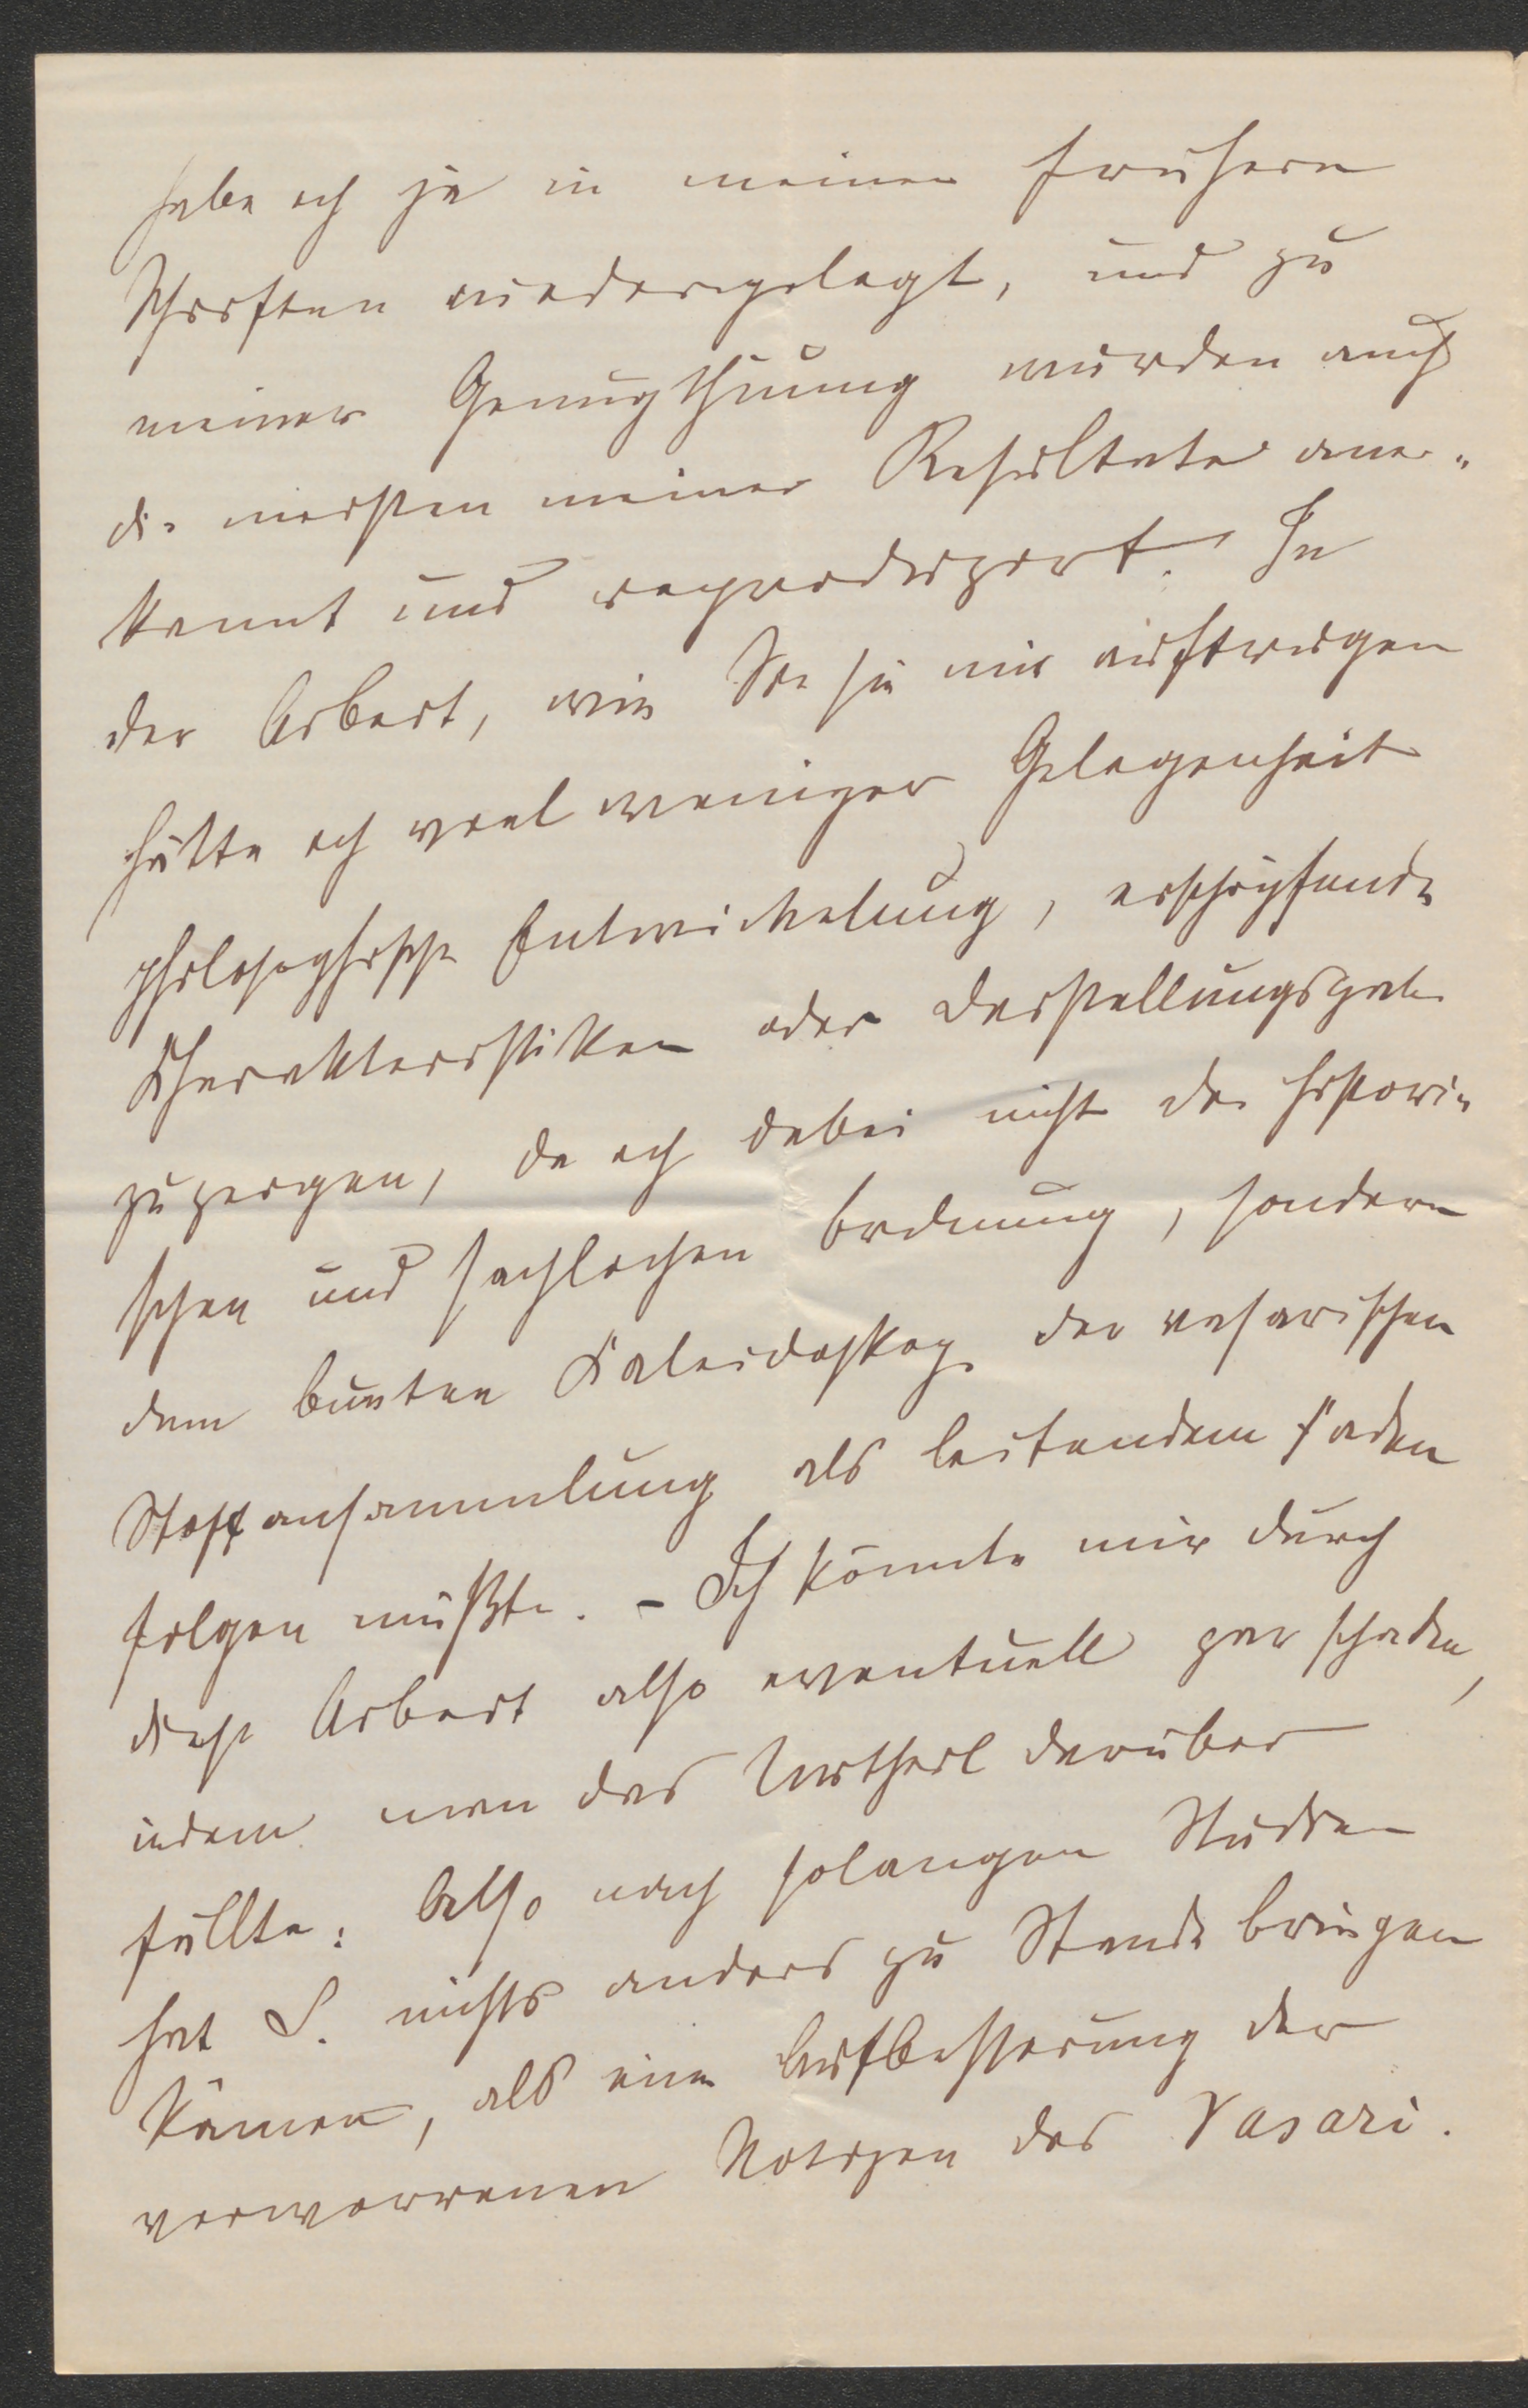 habe ich ja in meinen frühern
Schriften niedergelegt, und zu
meiner Genugthuung wurden auch
die meisten meiner Resultate aner-
kannt und reproduzirt. In
der Arbeit, wie Sie sie mir auftrugen
hätte ich viel weniger Gelegenheit
philosophische Entwickelung, erschöpfende
Charakteristiken oder Darstellungsgabe
zu zeigen, da ich dabei nicht der histori-
schen und sachlichen Ordnung, sondern
dem bunten Kaleidoskop der vasarischen
Stoffansammlung als leitendem Faden
folgen müßte. - Ich könnte mir durch
diese Arbeit also eventuell gar schaden,
indem man das Urtheil darüber
fällte: Also nach solangen Studien
hat S. nichts anders zu Stande bringen
können, als eine Aufbesserung der
verworrenen Notizen des Vasari.